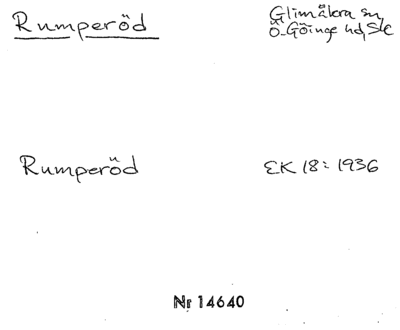 Rumperöd
Glimåkra sn
Ö-Göinge hd, Sk
Rumperöd
EK 18: 1936
Nr 14640